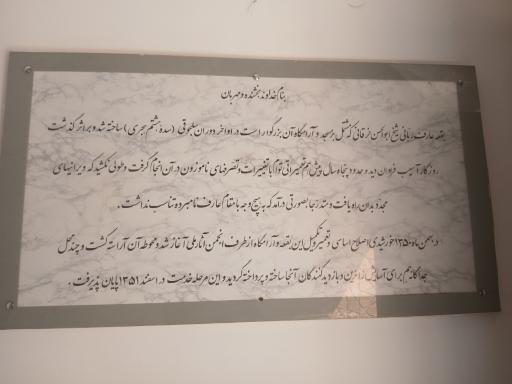 بنام خداوند بخشنده و مهربان
بقعه عارف ربانی شیخ ابوالحسن خرقانی که مشتمل بر مسجد و آرامگاه آن بزرگوار است در اواخر دوران سلجوقی (سده هشتم هجری) ساخته شد و بر اثر گذشت
روزگار آسیب فراوان دید و حدود پنجاه سال پیش هم تعمیراتی توأم با تغییرات و تصرفهای ناموزون در آن انجام گرفت و طولی نکشید که ویرانیهای
مجدد بدان راه یافت و متدرجا بصورتی درآمد که به هیچ وجه با مقام عارف نامبرده تناسب نداشت.
در بهمن ماه ۱۳۵۰ خورشیدی اصلاح اساسی و تعمیر و تکمیل این بقعه و آرامگاه از طرف انجمن آثار ملی آغاز شد و محوطه آن آراسته گشت و چند محل
جداگانه هم برای آسایش زائرین و بازدیدکنندگان آنجا ساخته و پرداخته گردید و این مرحله خدمت در اسفند ۱۳۵۱ پایان پذیرفت.